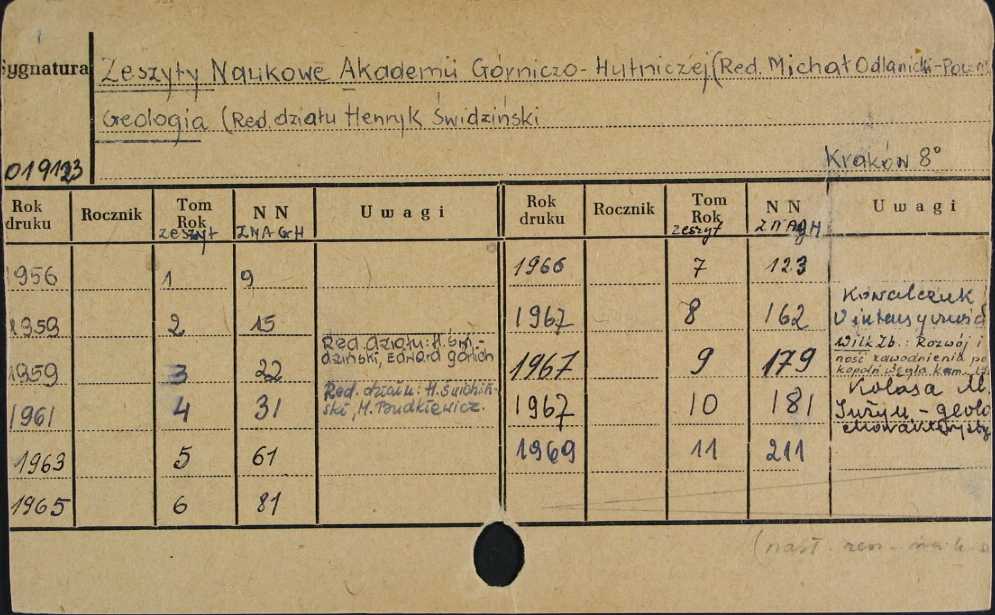 Sygnatura
Zeszyty Naukowe Akademii Górniczo-Hutniczej (Red. Michał Odlanicki-Pocz
Geologia (Red. działu Henryk Świdziński
019123
Kraków 8°
Rok druku Rocznik Tom Rok zeszyt NN ZNAGH Uwagi Rok druku Rocznik Tom Rok zeszyt NN ZNAGH Uwagi
1956 1 9
1959 2 15
1959 3 22 Red. działu: H. Świ-
dziński, Edward Görlich
1961 4 31 Red. działu: H. Świdziń-
ski, M. Budkiewicz.
1963 5 61
1965 6 81
1966 7 123
1967 8 162 Kowalczuk
O intensywnośc
1967 9 179 Wilk Zb.: Rozwój i
ność zawodnienia po
kopalń węgla kam.
1967 10 181 Kolasa M.
geolo
1969 11 211
(nast.